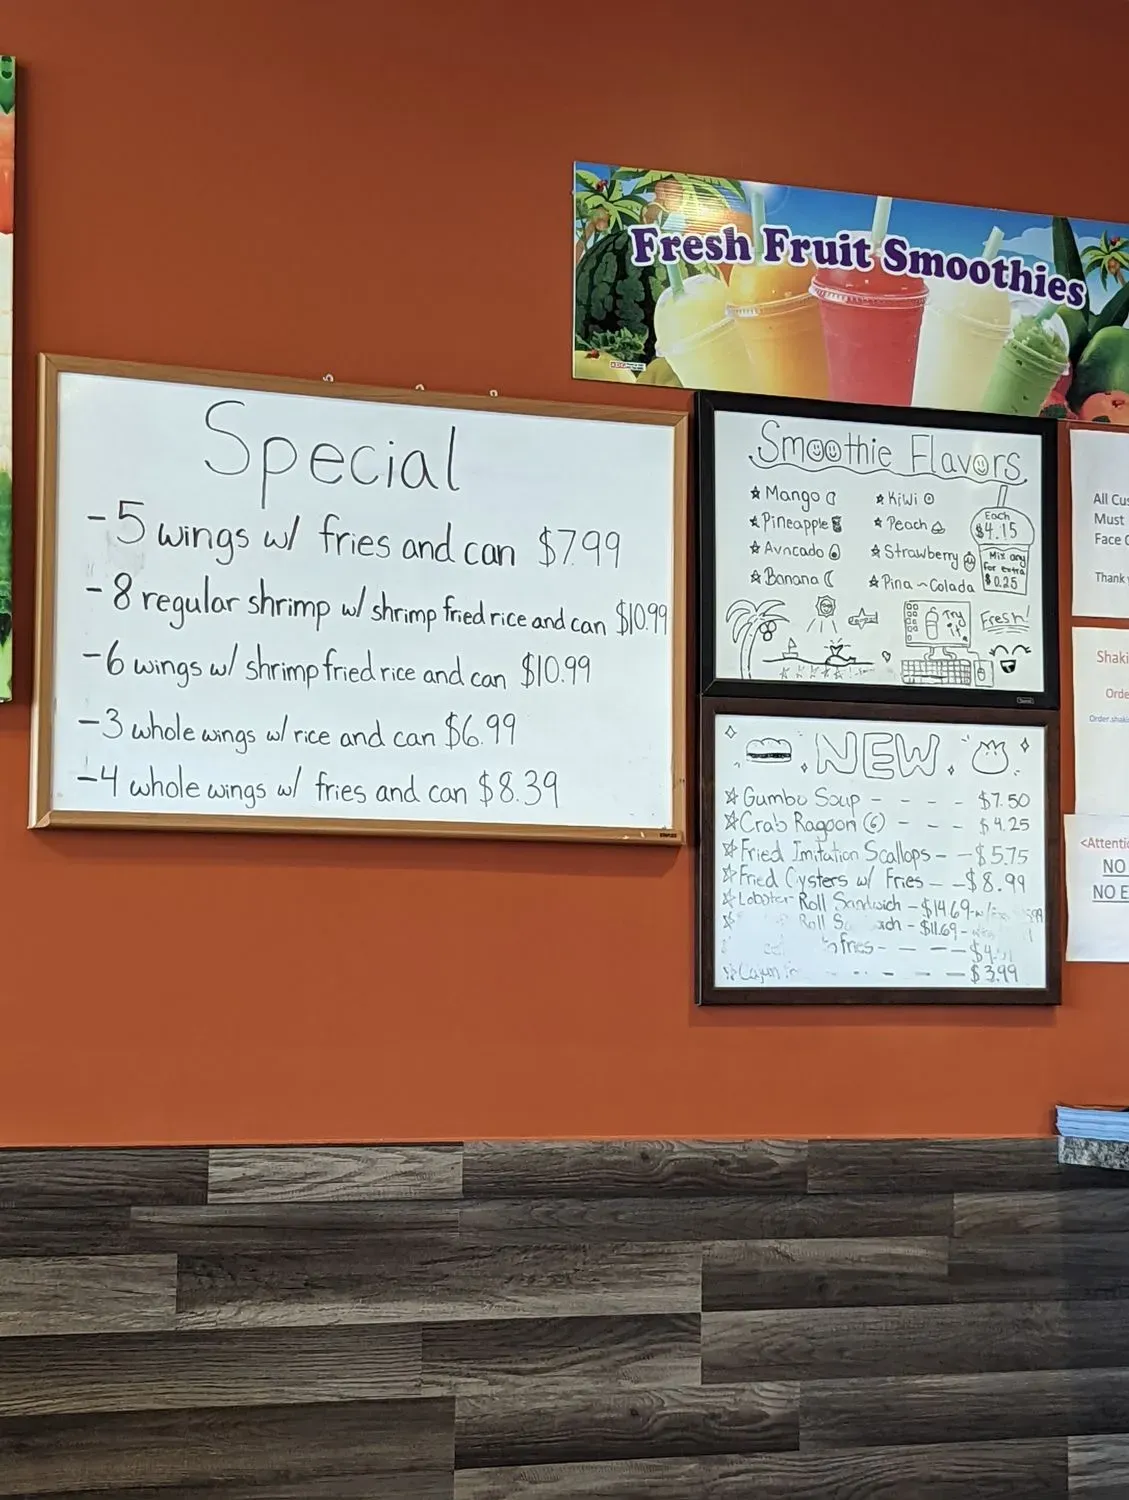 Special
-5 wings w/ fries and can $7.99
-8 regular shrimp w/ shrimp fried rice and can $10.99
-6 wings w/ shrimp fried rice and can $10.99
-3 whole wings w/ rice and can $6.99
-4 whole wings w/ fries and can $8.39
Fresh Fruit Smoothies
Smoothie Flavors
Mango
Pineapple
Avocado
Banana
Kiwi
Peach
Strawberry
Pina ~ Colada
Each
$4.15
Mix any
for extra
$0.25
Try
it
Fresh!
NEW
Gumbo Soup - - - - $7.50
Crab Ragoon (6) - - - $4.25
Fried Imitation Scallops - - $5.75
Fried Oysters w/ Fries - - $8.99
Lobster Roll Sandwich - $14.69 - w/
Roll - $11.69 -
fries - - - - $4.
Cajun - - - - $3.99
All Cus
Must
Face C
Thank
Shaki
Orde
Order.shaki
<Attenti
NO
NO E